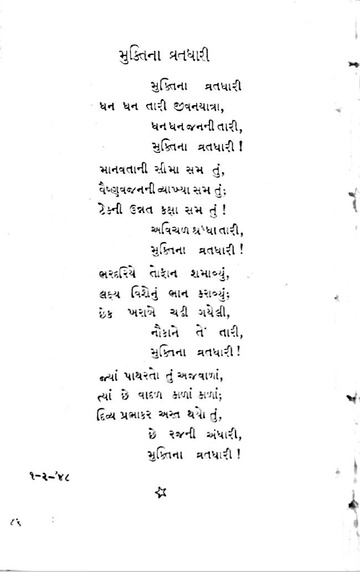 મુક્તિના વ્રતધારી
મુક્તિના વ્રતધારી
ધન ધન તારી જીવનયાત્રા,
ધન ધન જનની તારી,
મુક્તિના વ્રતધારી !
માનવતાની સીમા સમ તું,
વૈષ્ણવજનની વ્યાખ્યા સમ તું;
ટેકની ઉન્નત કક્ષા સમ તું !
અવિચળ શ્રધ્ધા તારી,
મુક્તિના વ્રતધારી !
ભરદરિયે તોફાન શમાવ્યું,
લક્ષ્ય વિશેનું ભાન કરાવ્યું;
છેક ખરાબે ચડી ગયેલી,
નૌકાને તેં તારી,
મુક્તિના વ્રતધારી !
જ્યાં પાથરતો તું અજવાળાં,
ત્યાં છે વાદળ કાળાં કાળાં;
દિવ્ય પ્રભાકર અસ્ત થયો તું,
છે રજની અંધારી,
મુક્તિના વ્રતધારી !
૧-૨-'૪૮
૮૬